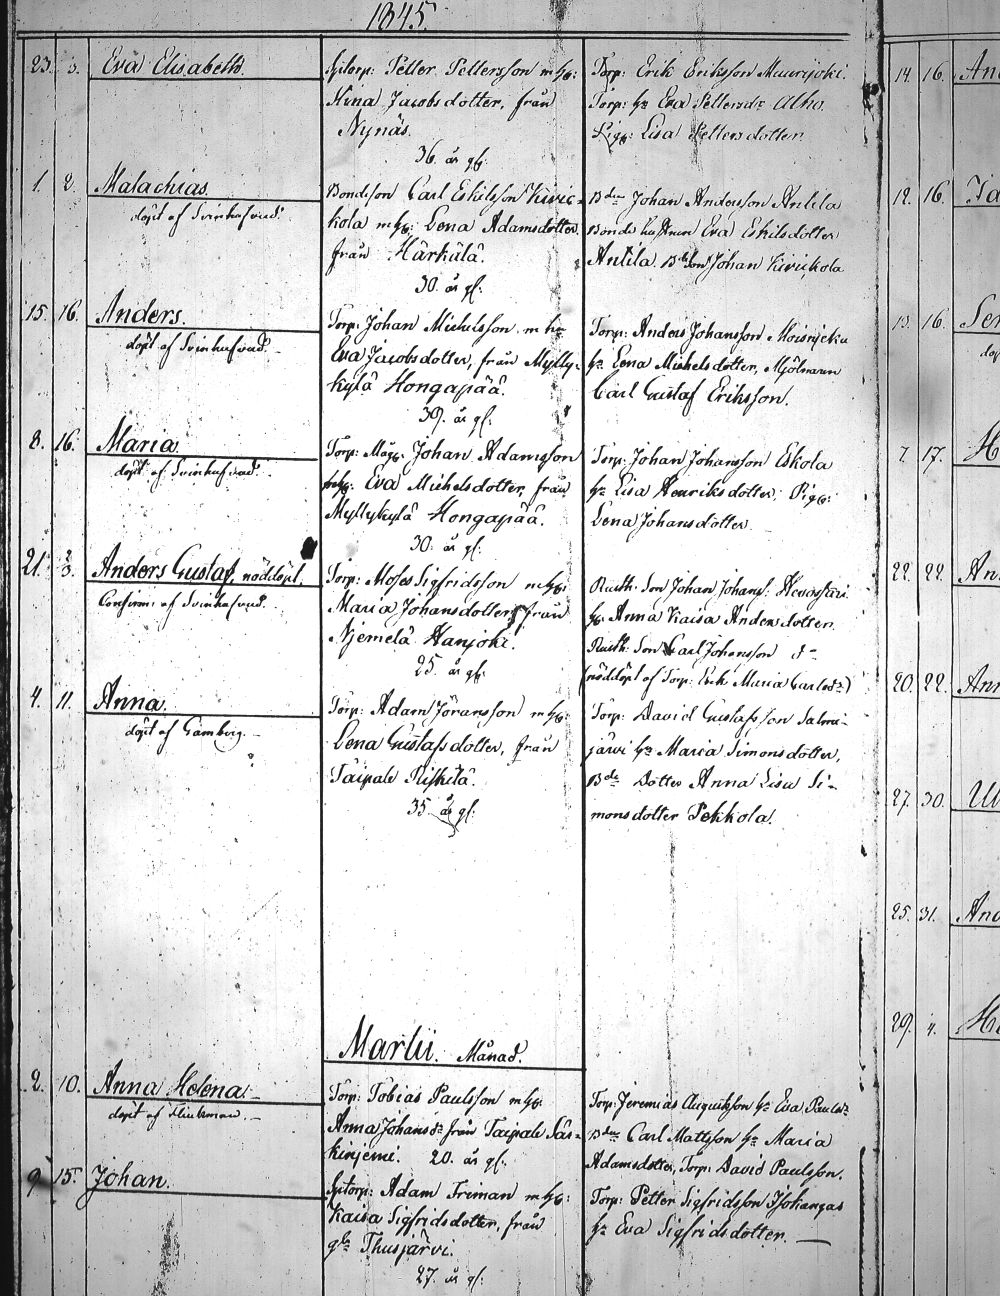 1845.
23. 3. Eva Elisabeth.
Sptorp: Petter Pettersson m h:
Stina Jacobsdotter, från
Nynäs.
36. år gl:
Torp: Erik Eriksson Maurijoki
Torp: h: Eva Pettersdr Alho.
Pig: Lisa Pettersdotter.
1. 2. Malachias.
döpt af Svinhufvud.
Bondeson Carl Eskilsson Kivic-
kola m h: Lena Adamsdotter.
från Härkälä.
30. år gl:
Bden Johan Andersson Antila
Bonde hustrun Eva Eskilsdotter
Antila. Johan Kivickola
15. 16. Anders.
döpt af Svinhufvud.
Torp: Johan Michelsson m h:
Eva Jacobsdotter, från Mylly-
kylä Hongapää.
39. år gl:
Torp: Anders Johansson
h: Lena Michelsdotter, Mjölnaren
Carl Gustaf Eriksson.
8. 16. Maria.
döpt af Svinhufvud.
Torp: Måg. Johan Adamsson
m h: Eva Michelsdotter, från
Myllykylä Hongapää.
30. år gl:
Torp: Johan Johansson Eskola
h: Lisa Henriksdotter; Pig:
Lena Johansdotter.
21. 2/3. Anders Gustaf, nöddöpt.
Confirm: af Svinhufvud.
Torp: Moses Sigfridsson m h:
Maria Johansdotter, från
Njemelä Hanjoki.
25. år gl:
Rusth: Son Johan Johans:
h: Anna Kaisa Andersdotter.
Rusth: Son Carl Johansson d-
(nöddöpt af Torp: Enk Maria Carlsdr)
4. 11. Anna.
döpt af Gamberg.
Torp: Adam Jöransson m h:
Lena Gustafsdotter, från
Taipale Riskilä.
35 år gl:
Torp: David Gustafsson Salmi-
järvi h: Maria Simonsdotter,
Bde Dotter Anna Lisa Si-
monsdotter Pekkola.
Martii. Månad.
2. 10. Anna Helena.
döpt af
Torp: Tobias Paulsson m h:
Anna Johansdr från Taipale Säs-
kinjemi. 20. år gl:
Torp: Jeremias Augustsson h: Eva Paulsdr
Bden Carl Mattsson h: Maria
Adamsdotter, Torp: David Paulsson.
9. 15. Johan.
Sptorp: Adam Friman m h:
Kaisa Sigfridsdotter, från
Thusjärvi.
27. år gl:
Torp: Petter Sigfridsson Isokangas
h: Eva Sigfridsdotter.
14. 16. An
12. 16. Ja
13. 16. Ser
döp
7. 17. H
22. 22. An
20. 22. Ann
27. 30. Ul
25. 31. And
29. 4. He